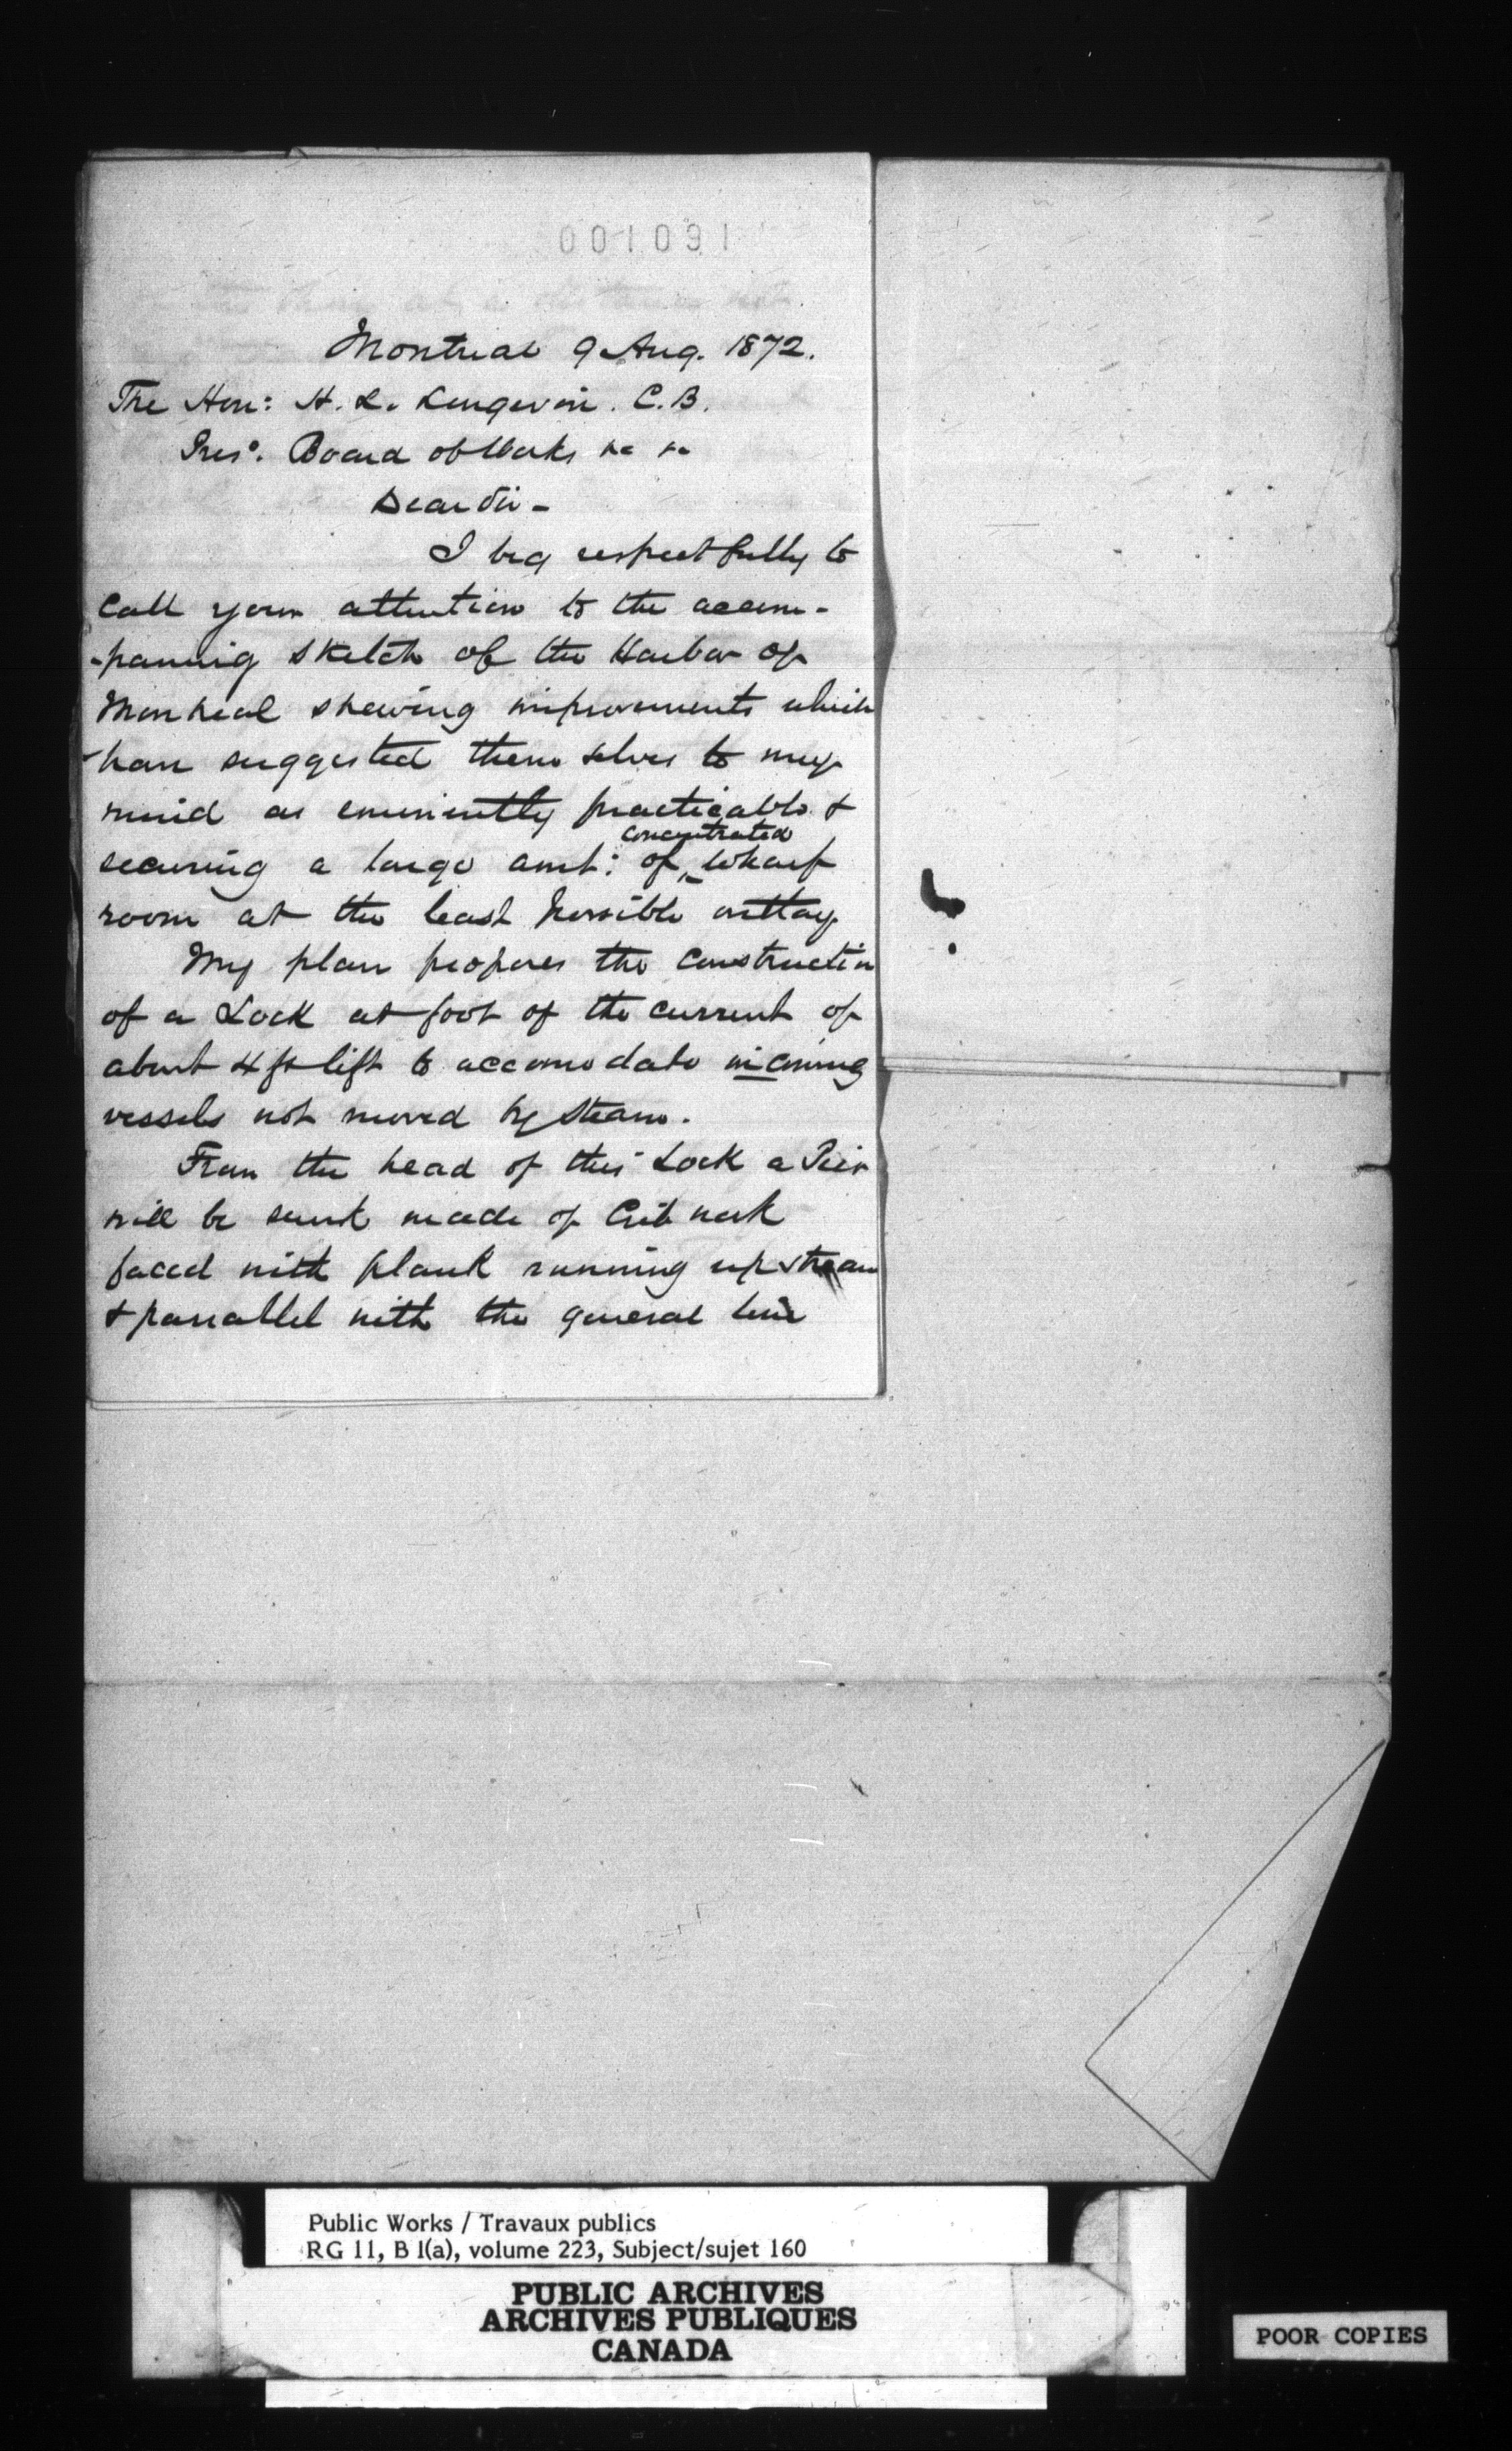 001091
Montreal 9 Aug. 1872.
The Hon: H. L. Langevin. C.B.
Presᵗ. Board of Works &c &c
Dear Sir -
I beg respectfully to
Call your attention to the accom-
-panning sketch of the Harbor of
Montreal shewing improvements which
have suggested themselves to my
mind as eminently practicable &
concentrated
securing a large amt: of ‸ wharf
room at the least possible outlay
My plan proposes the construction
of a Lock at foot of the current of
about 4 ft lift to accomodate incoming
vessels not moved by steam.
From the head of this Lock a Pier
will be sunk made of Crib work
faced with plank running up stream
& parrallel with the general line
Public Works / Travaux publics
RG 11, B 1(a), volume 223, Subject/sujet 160
PUBLIC ARCHIVES
ARCHIVES PUBLIQUES
CANADA
POOR COPIES